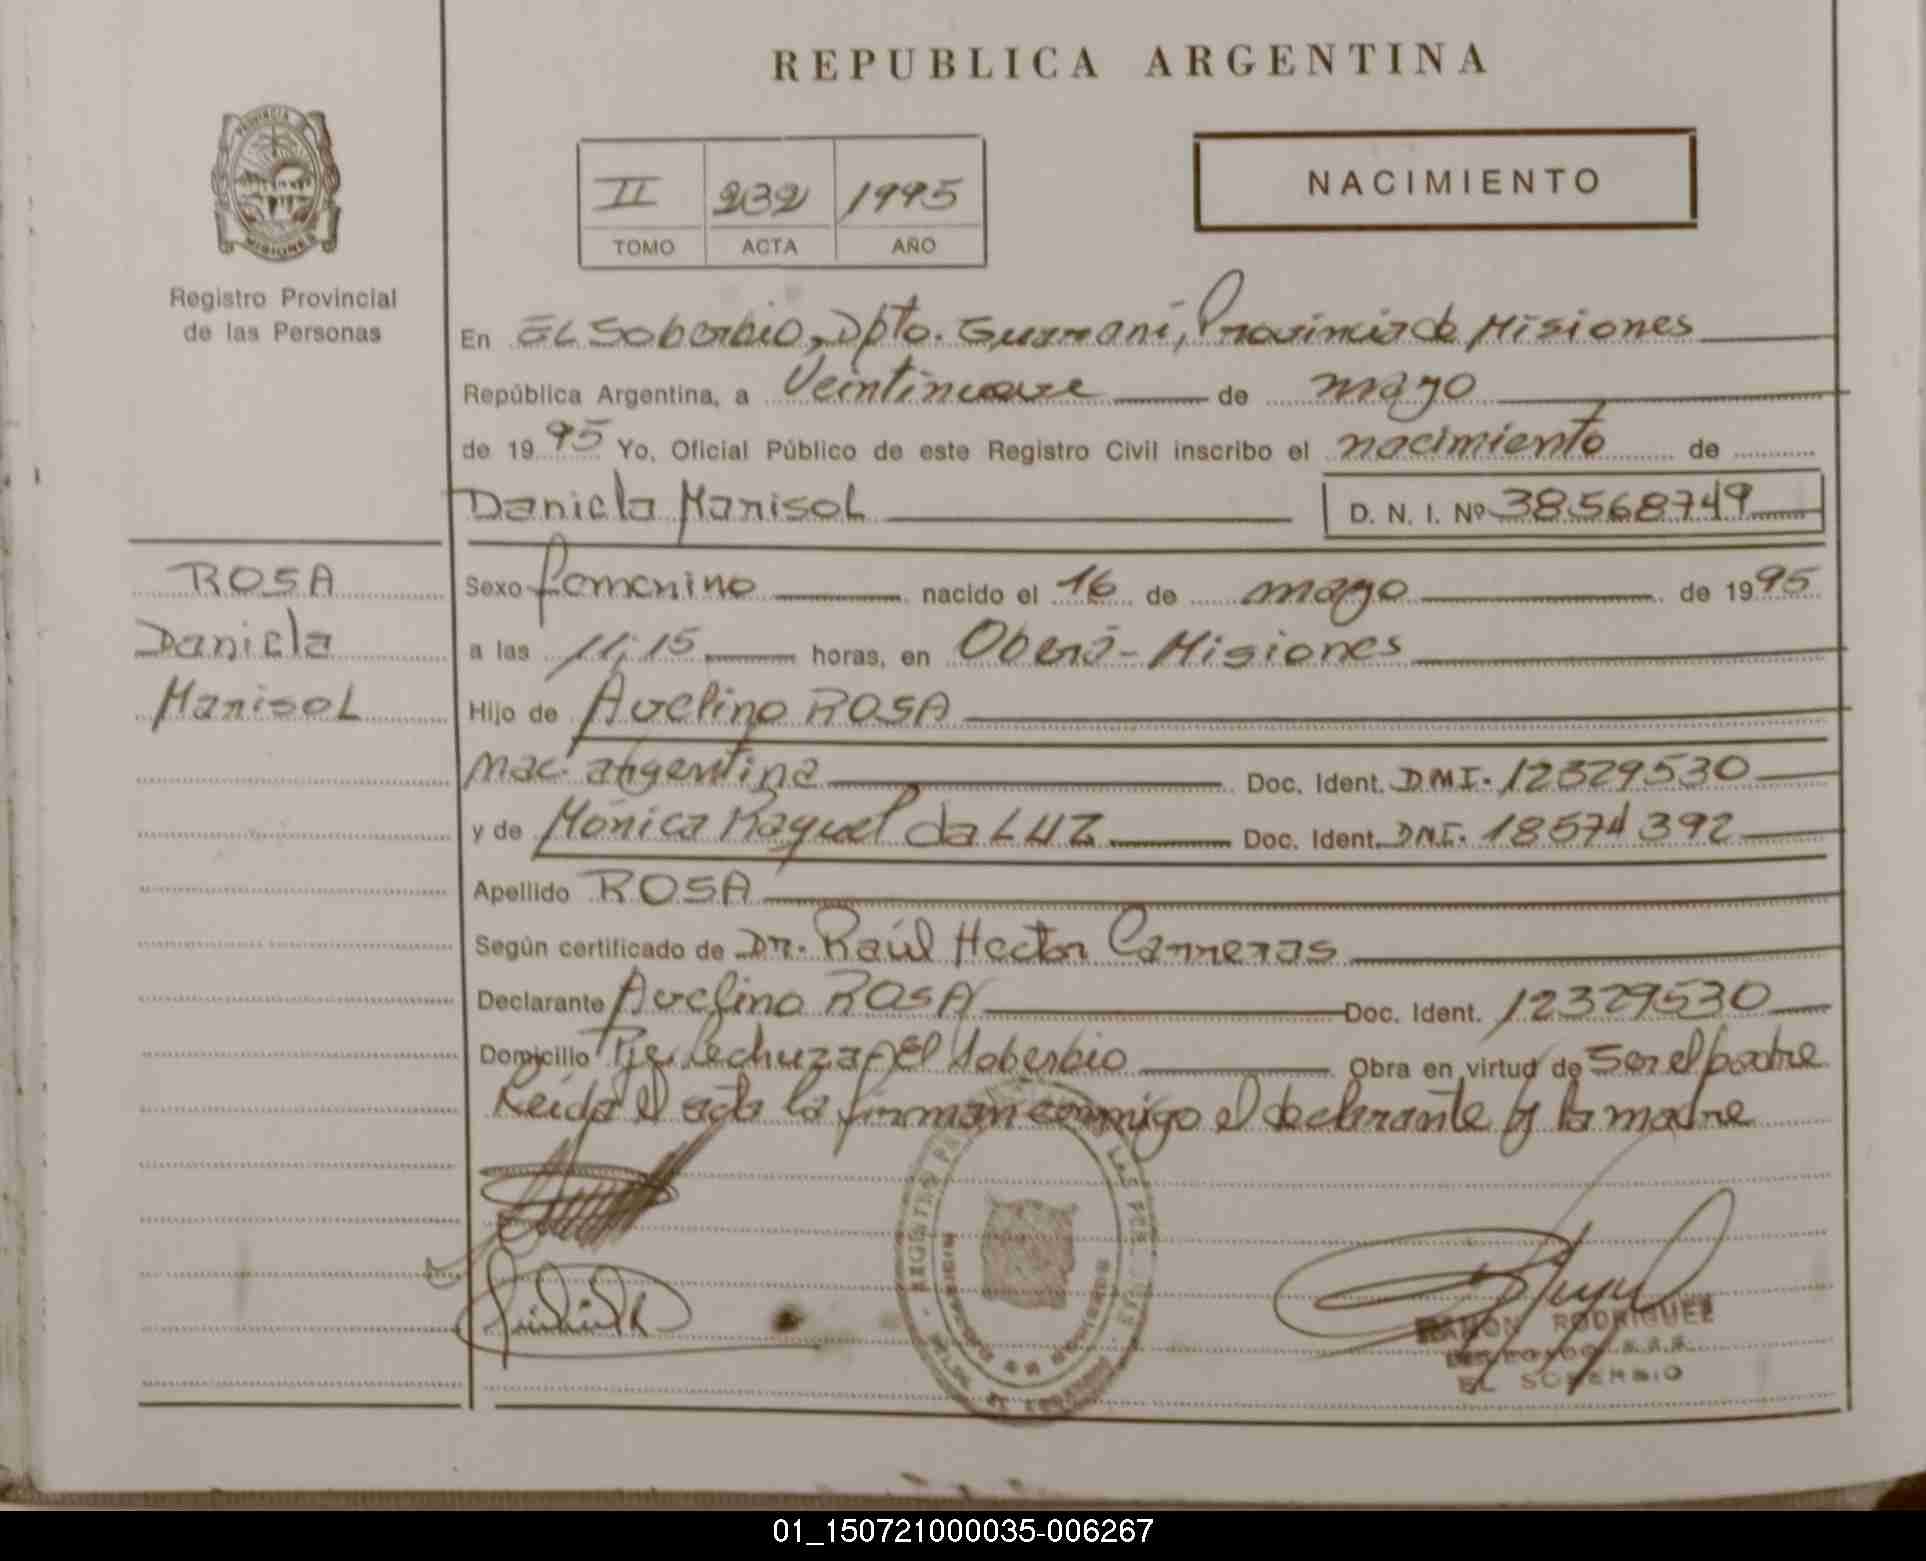 REPUBLICA ARGENTINA
PROVINCIA
MISIONES
Registro Provincial
de las Personas
II 232 1995
TOMO ACTA AÑO
NACIMIENTO
En El Soberbio, Dpto. Guaraní, Provincia de Misiones
República Argentina, a Veintinueve de mayo
de 1995 Yo, Oficial Público de este Registro Civil inscribo el nacimiento de
Daniela Marisol D. N. I. Nº 38568749
ROSA
Daniela
Marisol
Sexo femenino nacido el 16 de mayo de 1995
a las 11,15 horas, en Oberá - Misiones
Hijo de Avelino ROSA
Nac. argentina Doc. Ident. DNI. 12329530
y de Mónica Raquel da LUZ Doc. Ident. DNI. 18574392
Apellido ROSA
Según certificado de Dr. Raúl Hector Carreras
Declarante Avelino ROSA Doc. Ident. 12329530
Domicilio Pje. Lechuza - El Soberbio Obra en virtud de Ser el padre
Leída el acta la firman conmigo el declarante y la madre
RAMON RODRIGUEZ
EL SOBERBIO
01_150721000035-006267